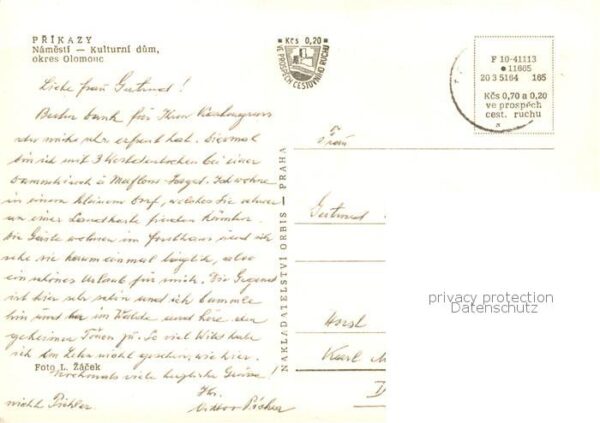 PŘÍKAZY
Náměstí — Kulturní dům,
okres Olomouc
Kčs 0,20
VE PROSPĚCH CESTOVNÍHO RUCHU
F 10-41113
11665
20 3 5164 165
Kčs 0,70 a 0,20
ve prospěch
cest. ruchu
Liebe Frau Gertrud!
Besten Dank für Ihren
der mich sehr erfreut hat. Diesmal
bin ich mit 3 bei einer
Damhirsch & Mufflon-Jagd. Ich wohne
in einem kleinem Dorf, welches Sie schwer
an einer Landkarte finden könnten.
Die Gäste wohnen im Forsthaus und ich
sehe sie kaum einmal täglich, also
ein schönes Urlaub für mich. Die Gegend
ist hier sehr schön und ich bummle
hin und her im Walde und höre den
geheimen Tönen zu. So viel Wild habe
ich im Leben nicht gesehen, wie hier.
Nochmals viele herzliche Grüsse!
Ihr
Foto L. Žáček
NAKLADATELSTVÍ ORBIS — PRAHA
Frau
Gertrud
Horst
Karl
D
privacy protection
Datenschutz